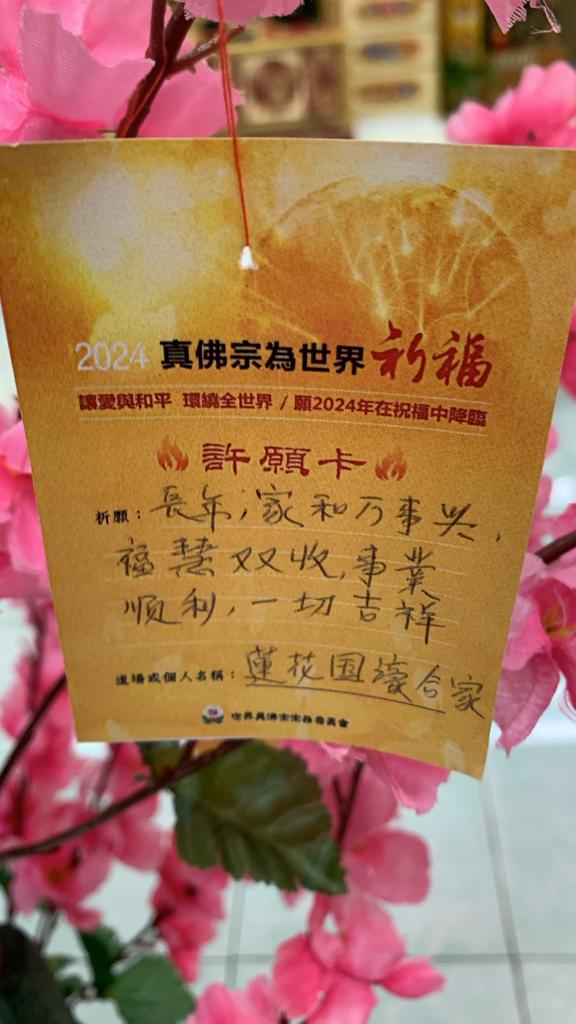 2024 真佛宗為世界祈福
讓愛與和平 環繞全世界 / 願2024年在祝福中降臨
許願卡
祈願：長年，家和万事兴，
福慧双收，事業
順利，一切吉祥
道場或個人名稱：蓮花国濤合家
世界真佛宗宗務委員會